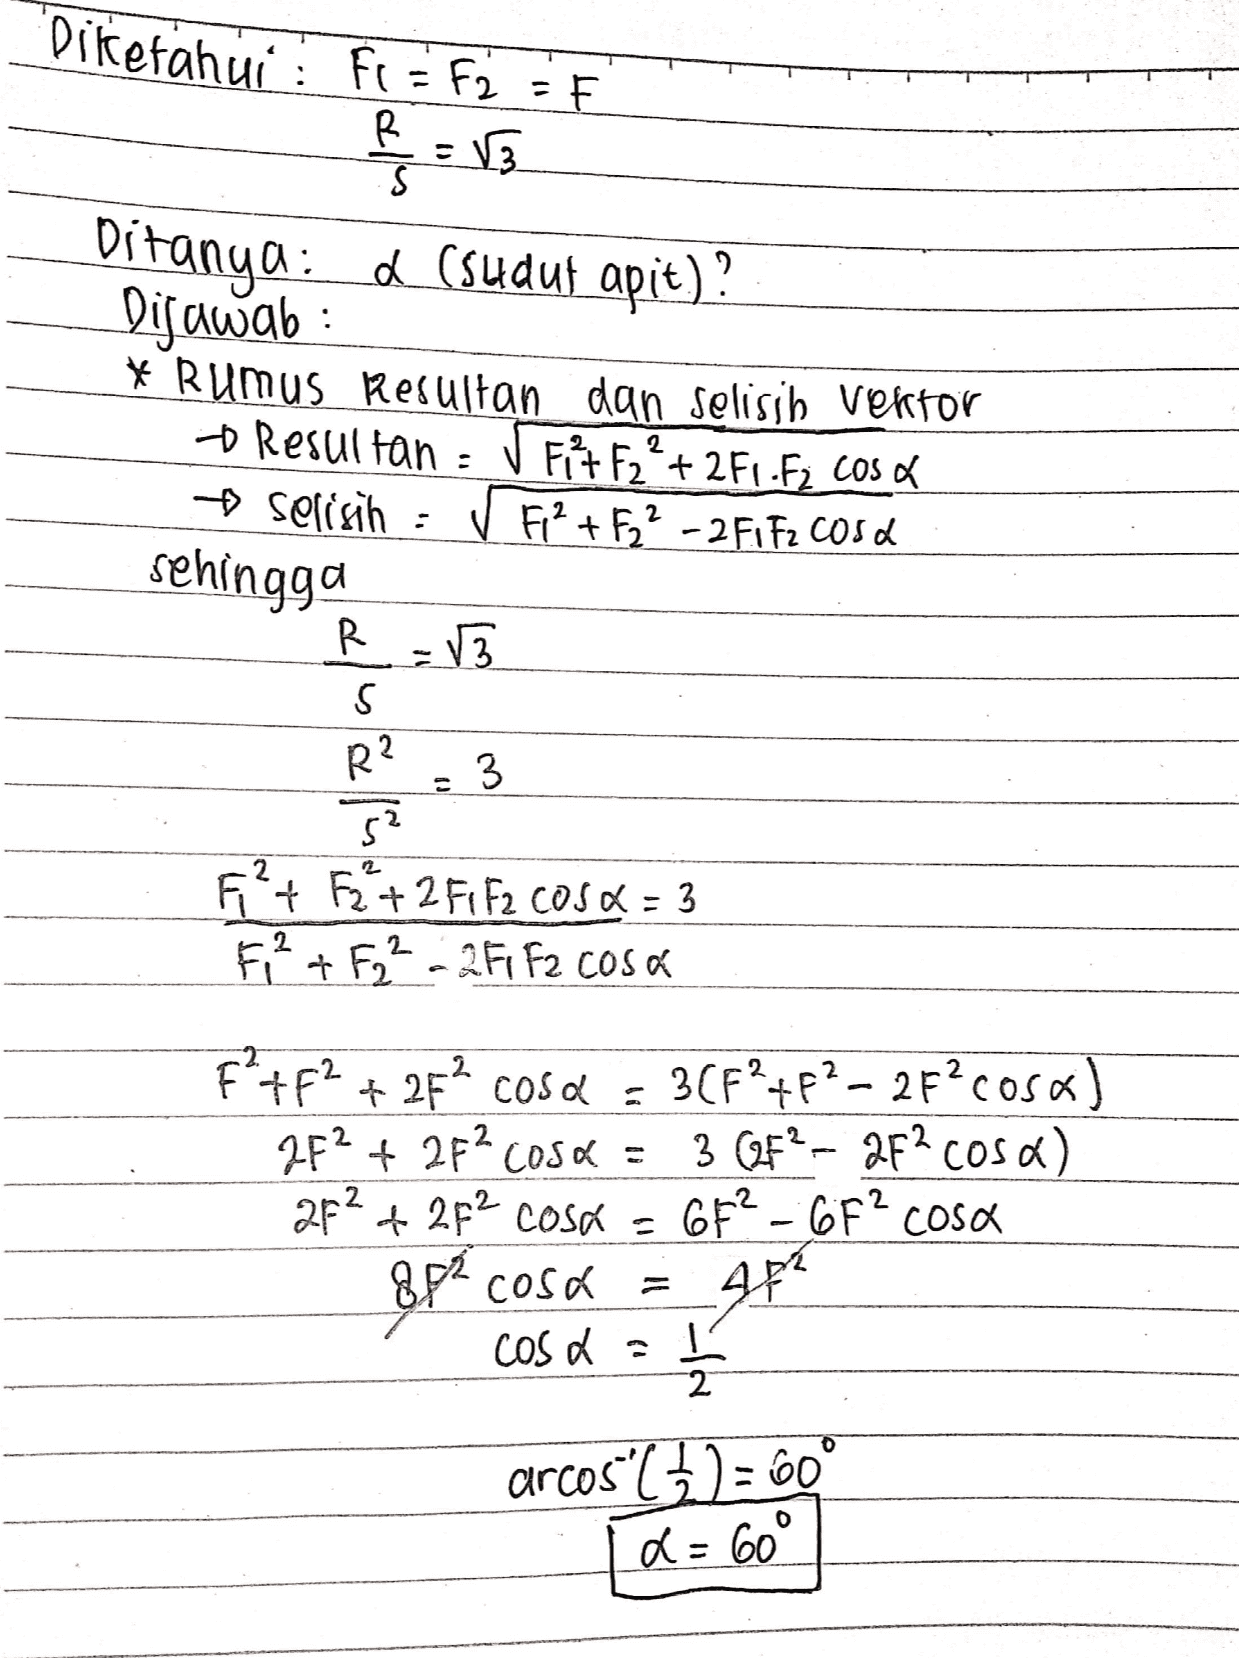 Diketahui : F1 = F2 = F
R/S = √3
Ditanya : α (sudut apit) ?
Dijawab :
* Rumus Resultan dan selisih vektor
→ Resultan = √F1² + F2² + 2F1.F2 cos α
→ selisih = √F1² + F2² - 2F1F2 cos α
sehingga
R/S = √3
R²/S² = 3
F1² + F2² + 2F1F2 cos α = 3
F1² + F2² - 2F1F2 cos α
F² + F² + 2F² cos α = 3(F² + F² - 2F² cos α)
2F² + 2F² cos α = 3 (2F² - 2F² cos α)
2F² + 2F² cos α = 6F² - 6F² cos α
8F² cos α = 4F²
cos α = 1/2
arcos⁻¹(1/2) = 60°
α = 60°